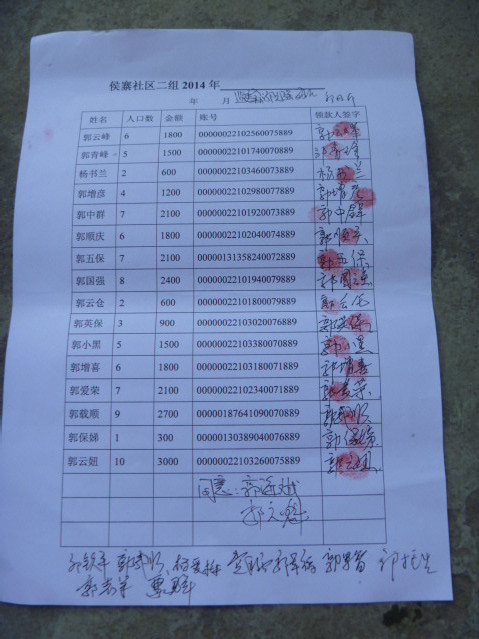 侯寨社区二组 2014 年
年 月
姓名 人口数 金额 账号 领款人签字
郭云峰 6 1800 00000022102560075889 郭云峰
郭青峰 5 1500 00000022101740070889 郭青峰
杨书兰 2 600 00000022103460073889 杨书兰
郭增彦 4 1200 00000022102980077889 郭增彦
郭中群 7 2100 00000022101920073889 郭中群
郭顺庆 6 1800 00000022102040074889 郭顺庆
郭五保 7 2100 00000131358240072889 郭五保
郭国强 8 2400 00000022101940079889 郭国强
郭云仓 2 600 00000022101800079889 郭云仓
郭英保 3 900 00000022103020076889 郭英保
郭小黑 5 1500 00000022103380070889 郭小黑
郭增喜 6 1800 00000022103180071889 郭增喜
郭爱荣 7 2100 00000022102340071889 郭爱荣
郭载顺 9 2700 00000187641090070889 郭载顺
郭保娣 1 300 00000130389040076889 郭保娣
郭云妞 10 3000 00000022103260075889 郭云妞
同意:郭